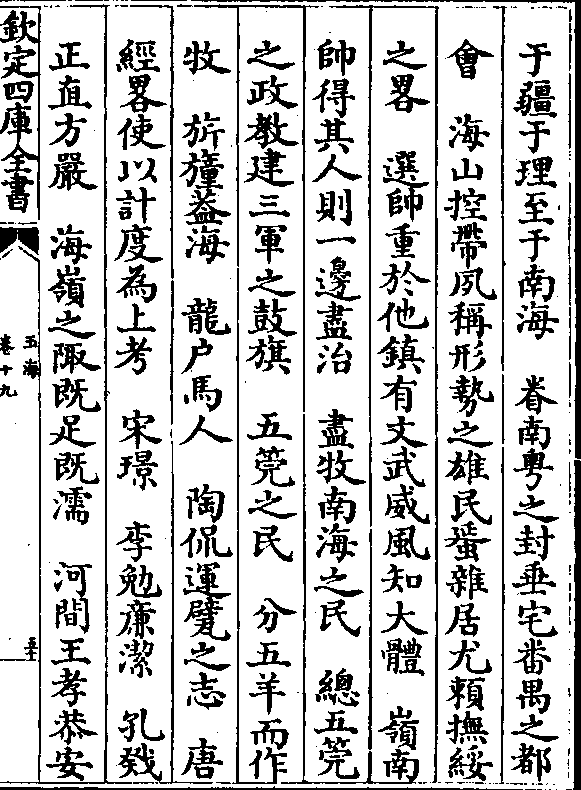 于疆于理至于南海　眷南粤之封垂宅番禺之都
會　海山控帶夙稱形勢之雄民蜑雜居尤頼撫綏
之畧　選帥重於他鎮有文武威風知大體　嶺南
帥得其人則一邊盡治　盡牧南海之民　總五筦
之政教建三軍之鼓旗　五筦之民　分五羊而作
牧　旂幢蓋海　龍户馬人　陶侃運甓之志　唐
經畧使以計度為上考　宋璟　李勉亷潔　孔戣
正直方嚴　海嶺之陬既足既濡　河間王孝恭安
欽定四庫全書
玉海
卷十九